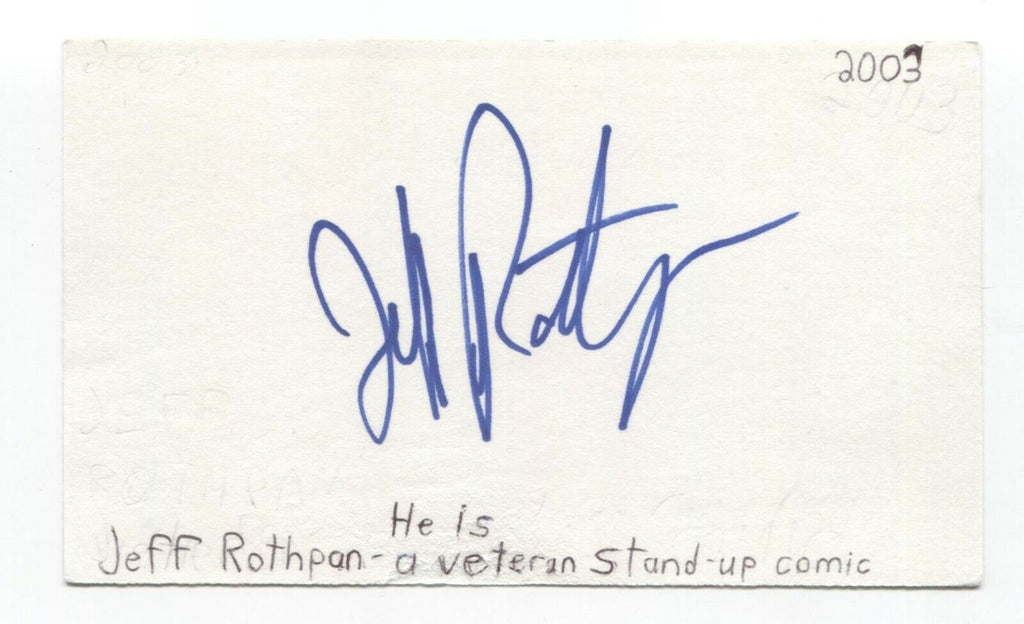 2003
Jeff Rothp
He is
Jeff Rothpan - a veteran stand-up comic